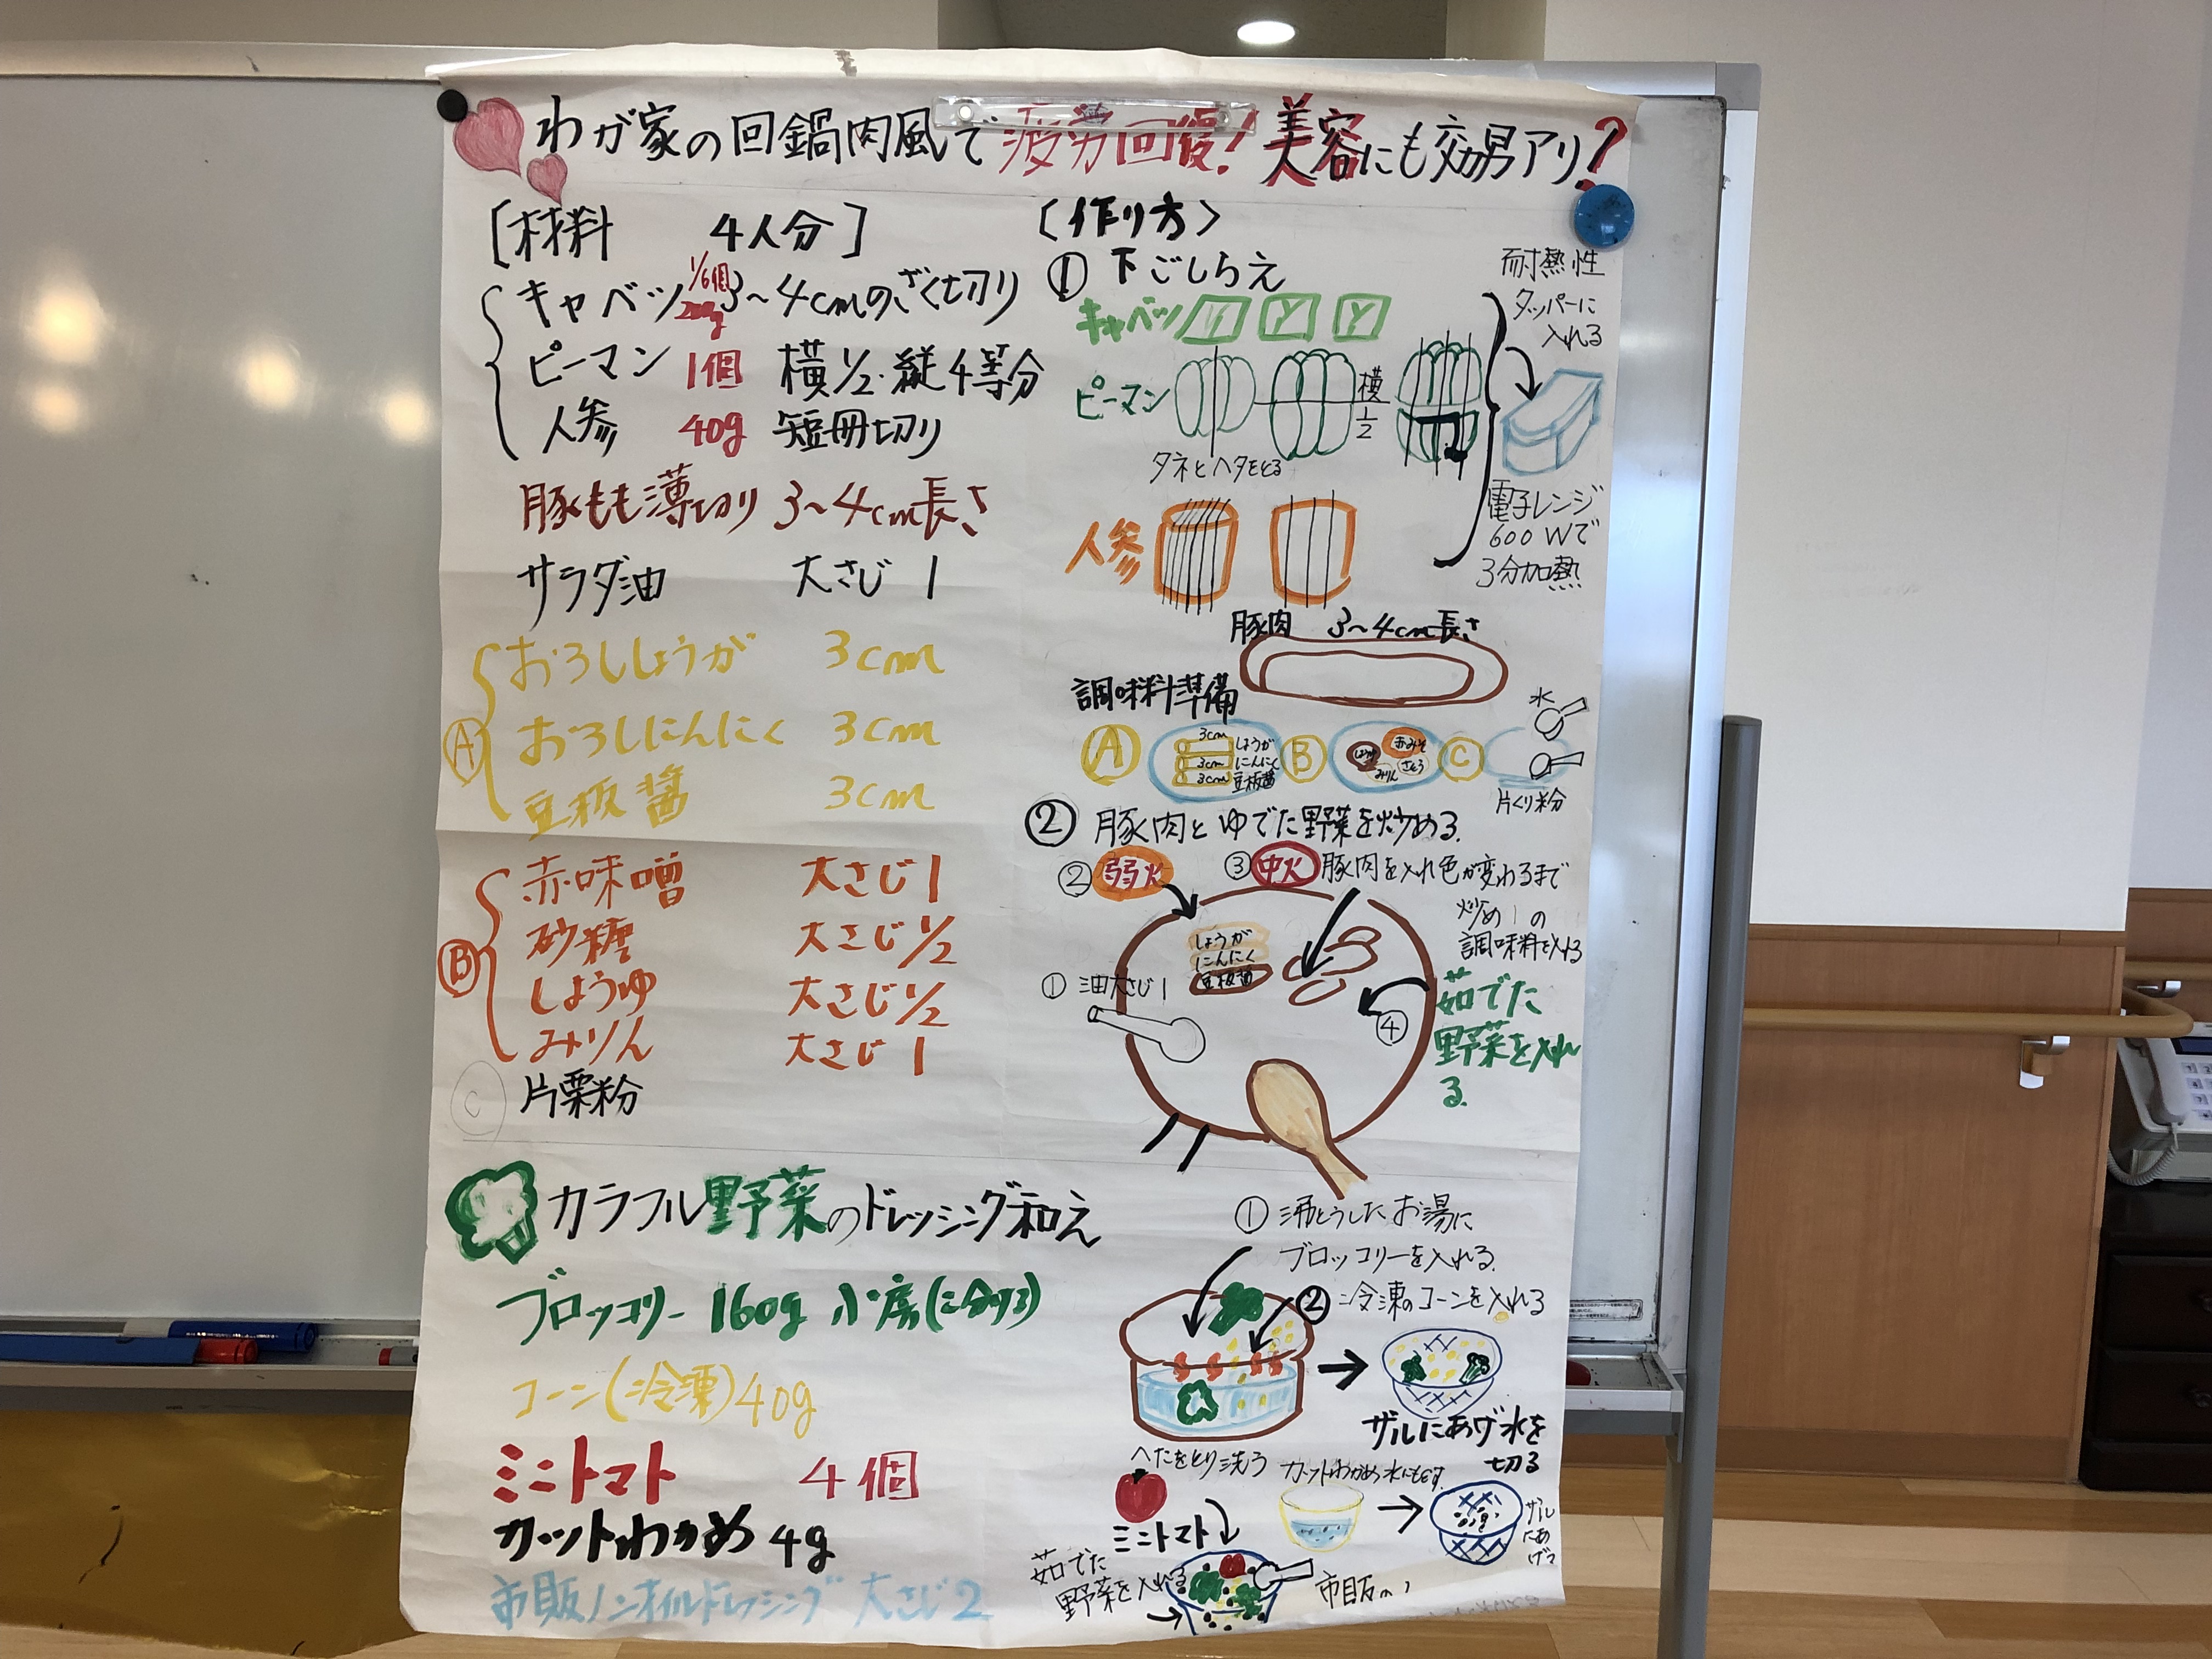 わが家の回鍋肉風で疲労回復!美容にも効果アリ?
[材料 4人分]
キャベツ 1/6個 200g 3~4cmのざく切り
ピーマン 1個 横1/2・縦4等分
人参 40g 短冊切り
豚もも薄切り 3~4cm長さ
サラダ油 大さじ1
A
おろししょうが 3cm
おろしにんにく 3cm
豆板醤 3cm
B
赤味噌 大さじ1
砂糖 大さじ1/2
しょうゆ 大さじ1/2
みりん 大さじ1
C 片栗粉
〈作り方〉
① 下ごしらえ
キャベツ
ピーマン
横1/2
タネとヘタをとる
人参
耐熱性
タッパーに
入れる
電子レンジ
600Wで
3分加熱
豚肉 3~4cm長さ
調味料準備
A
3cm しょうが
3cm にんにく
3cm 豆板醤
B
しょうゆ 赤みそ
みりん さとう
C
水
片くり粉
② 豚肉とゆでた野菜を炒める.
② 弱火
③ 中火 豚肉を入れ色が変わるまで
炒め1の
調味料を入れる
しょうが
にんにく
豆板醤
① 油大さじ1
④
茹でた
野菜を入れ
る.
カラフル野菜のドレッシング和え
ブロッコリー 160g 小房(に分ける)
コーン(冷凍)40g
ミニトマト 4個
カットわかめ 4g
市販ノンオイルドレッシング 大さじ2
① 沸とうしたお湯に
ブロッコリーを入れる.
② 冷凍のコーンを入れる
ザルにあげ水を
切る
へたをとり洗う
ミニトマト
カットわかめ水にもどす.
ザル
にあ
げる
茹でた
野菜を入れる
市販の